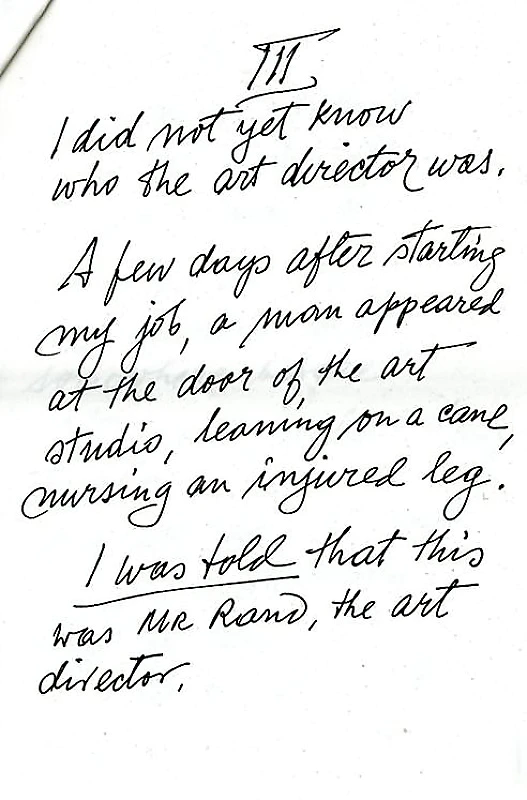 III
I did not yet know
who the art director was.
A few days after starting
my job, a man appeared
at the door of the art
studio, leaning on a cane,
nursing an injured leg.
I was told that this
was MR Rand, the art
director.